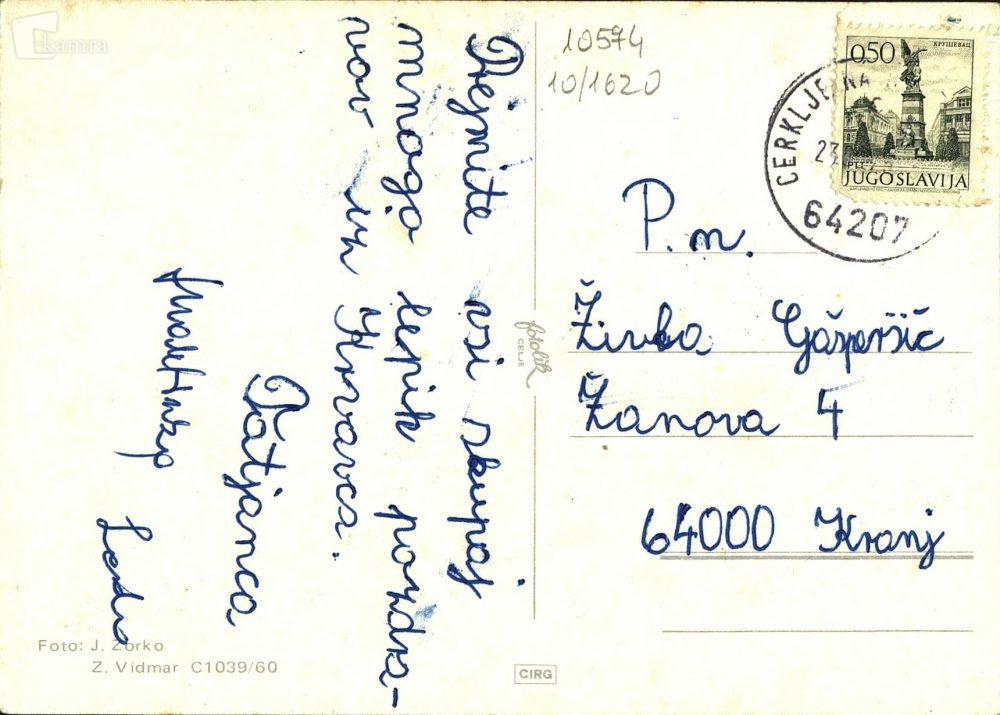 kamra
Prejmite vsi skupaj
mnogo lepih pozdra-
vov iz Krvavca.
Tatjanca
10574
10/1620
0,50
КРУШЕВАЦ
PTT
JUGOSLAVIJA
CERKLJE NA
23
64207
P. n.
Živka Gašperšič
Žanova 4
64000 Kranj
fotolik
CELJE
Foto: J. Zorko
Z. Vidmar C1039/60
CIRG